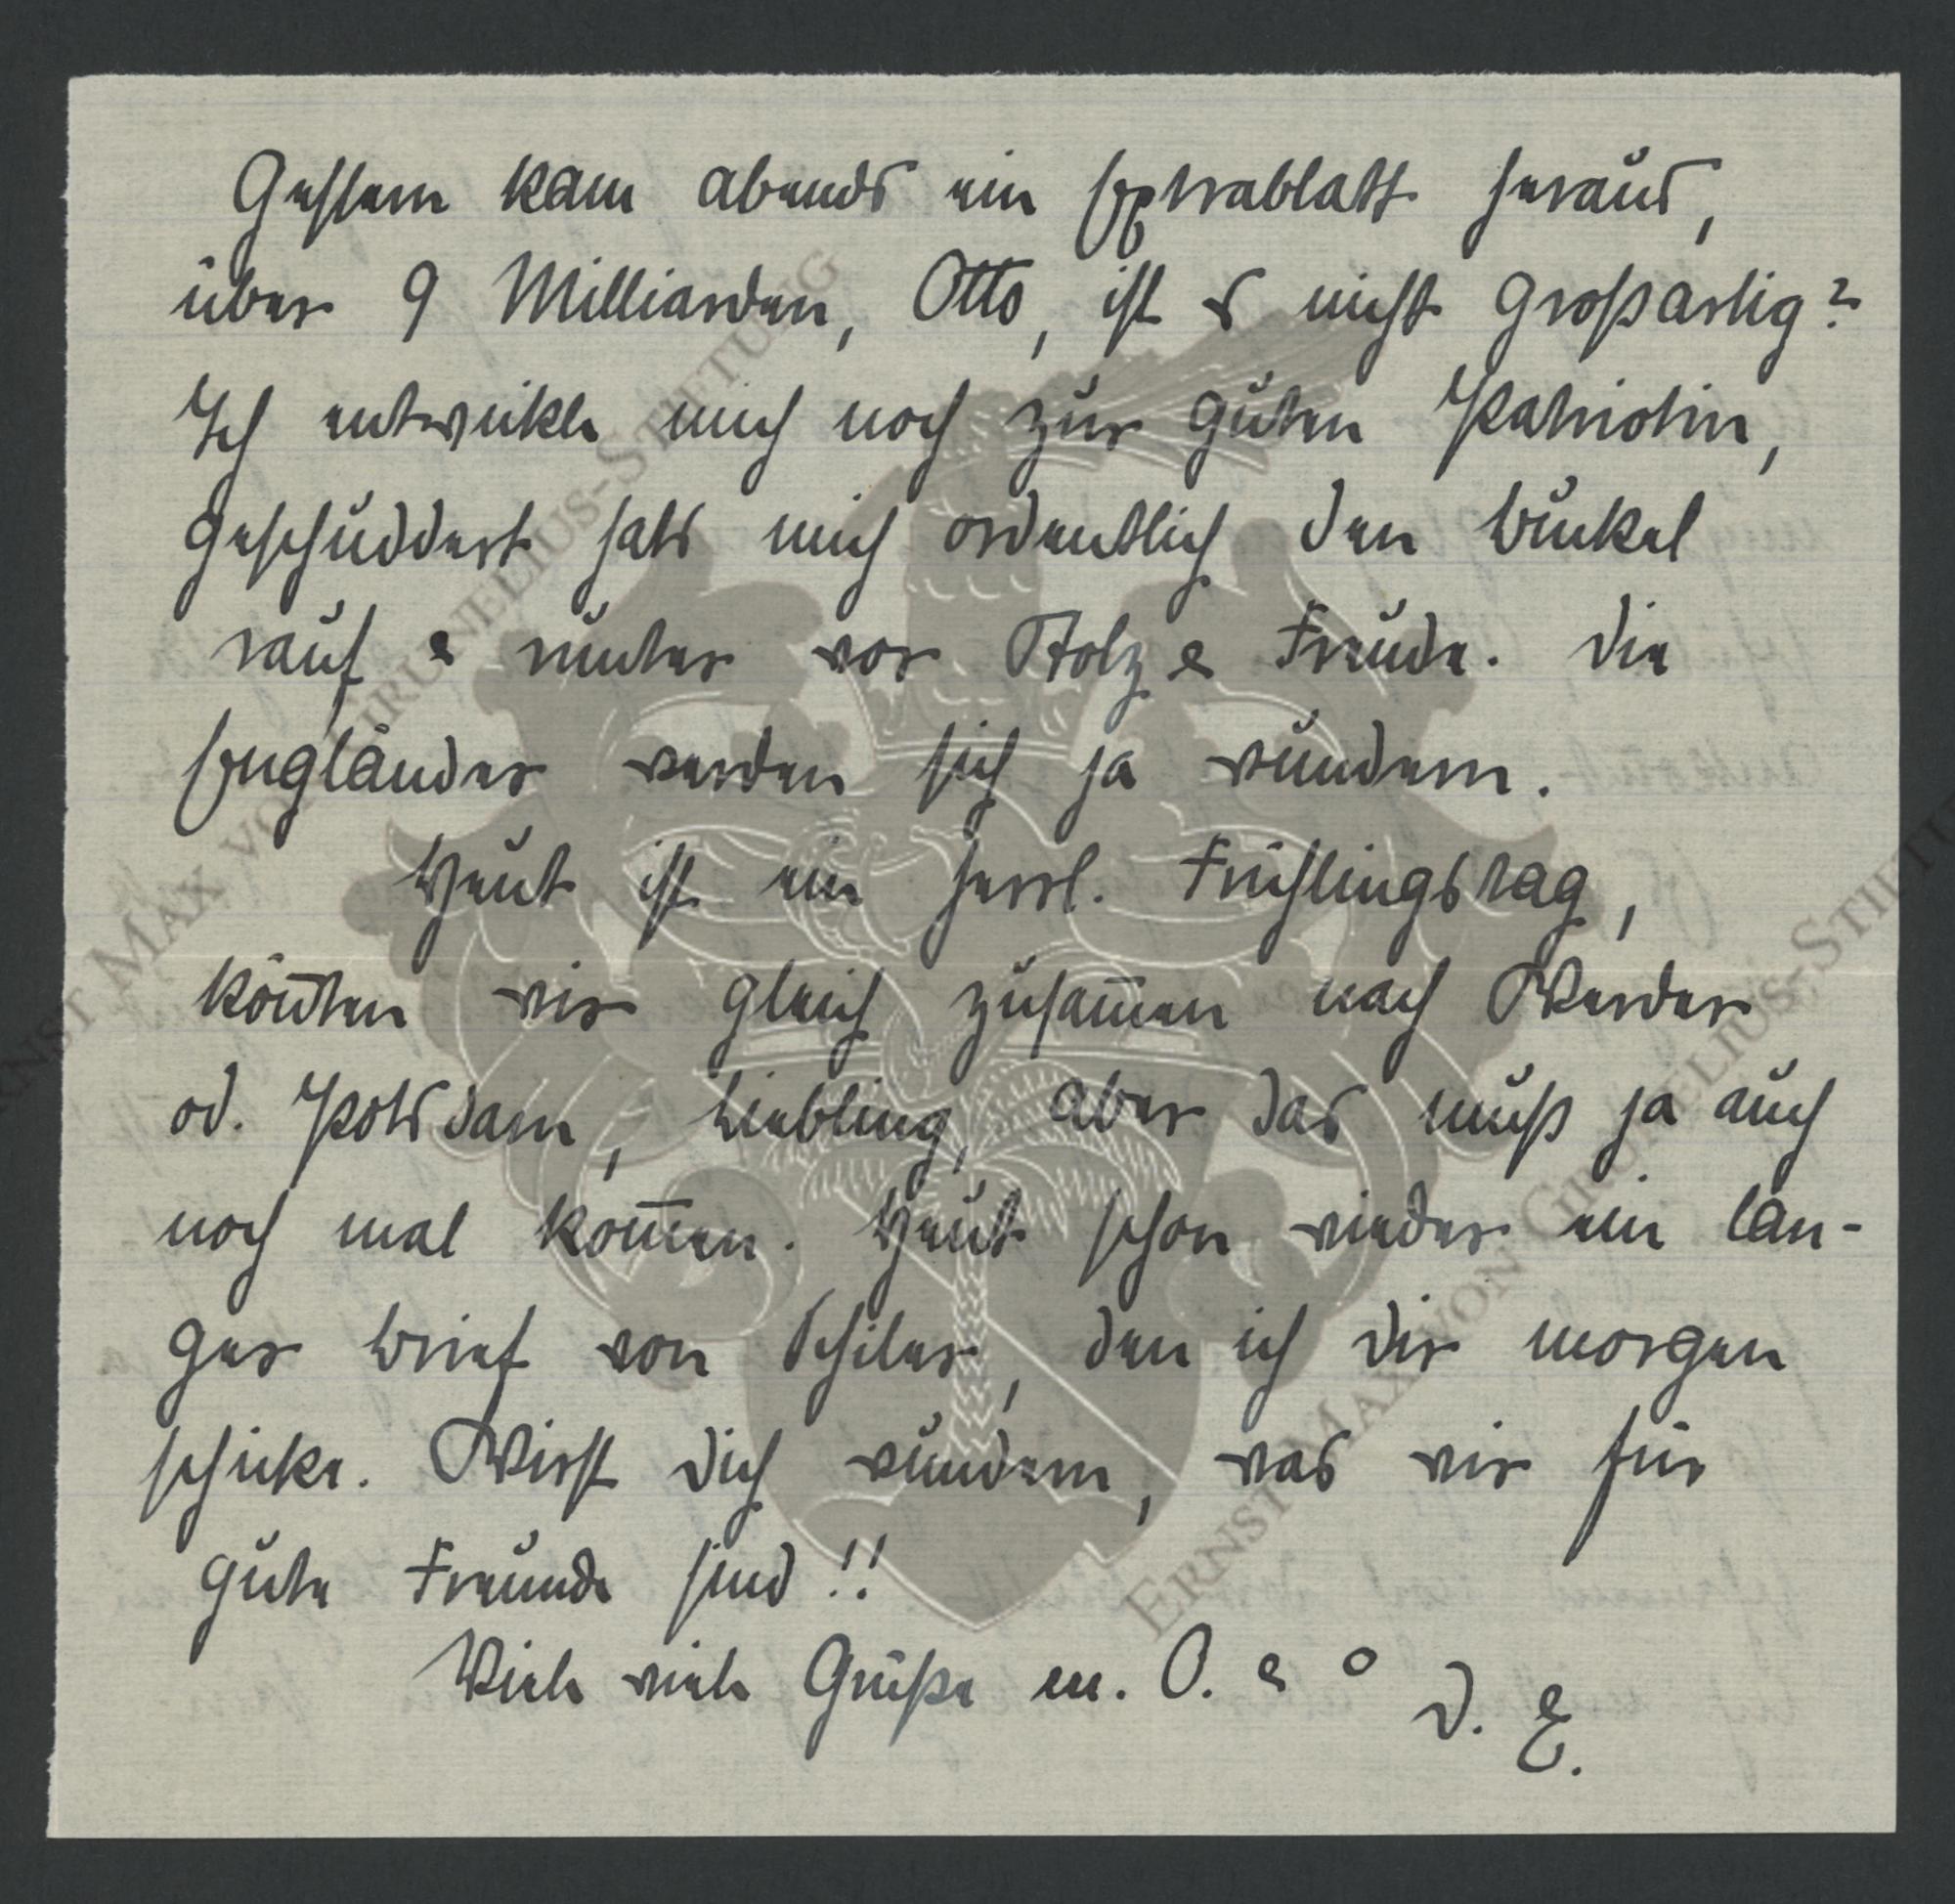 Gestern kam abends ein Extrablatt heraus,
über 9 Milliarden, Otto, ist es nicht großartig?
Ich entwickle mich noch zur guten Patriotin,
geschuddert hats mich ordentlich den Buckel
rauf & runter vor Stolz & Freude. Die
Engländer werden sich ja wundern.
Heut ist ein herrl. Frühlingstag,
kön̄ten wir gleich zusam̄en nach Werder
od. Potsdam, Liebling, aber das muß ja auch
noch mal kom̄en. Heut schon wieder ein lan-
ger Brief von Schiler, den ich dir morgen
schicke. Wirst dich wundern, was wir für
gute Freunde sind!!
Viele viele Grüße m. O. & o D. E.
ERNST MAX VON GRUNELIUS-STIFTUNG
ERNST MAX VON GRUNELIUS-STIFTUNG